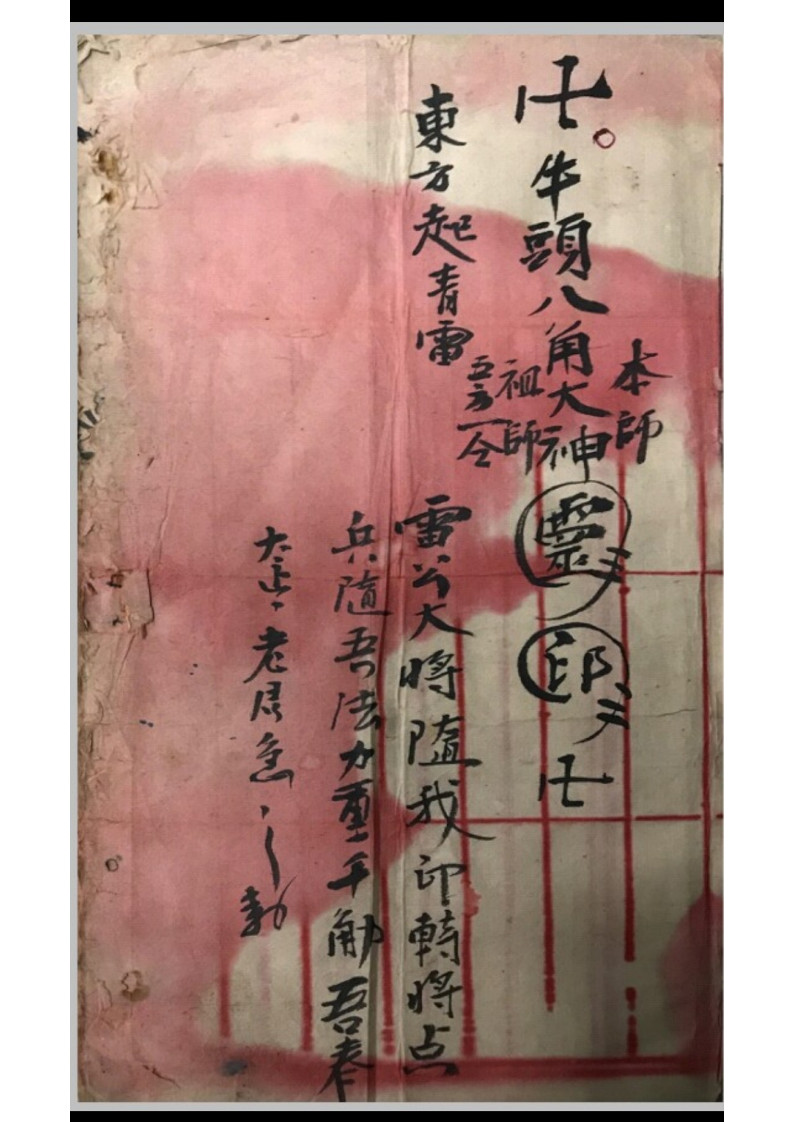 本師
卍牛頭八角大神靈印卍
祖師
東方起青雷
雷公大將隨我印轉將点
兵隨吾法力重千觔吾奉
太上老君急